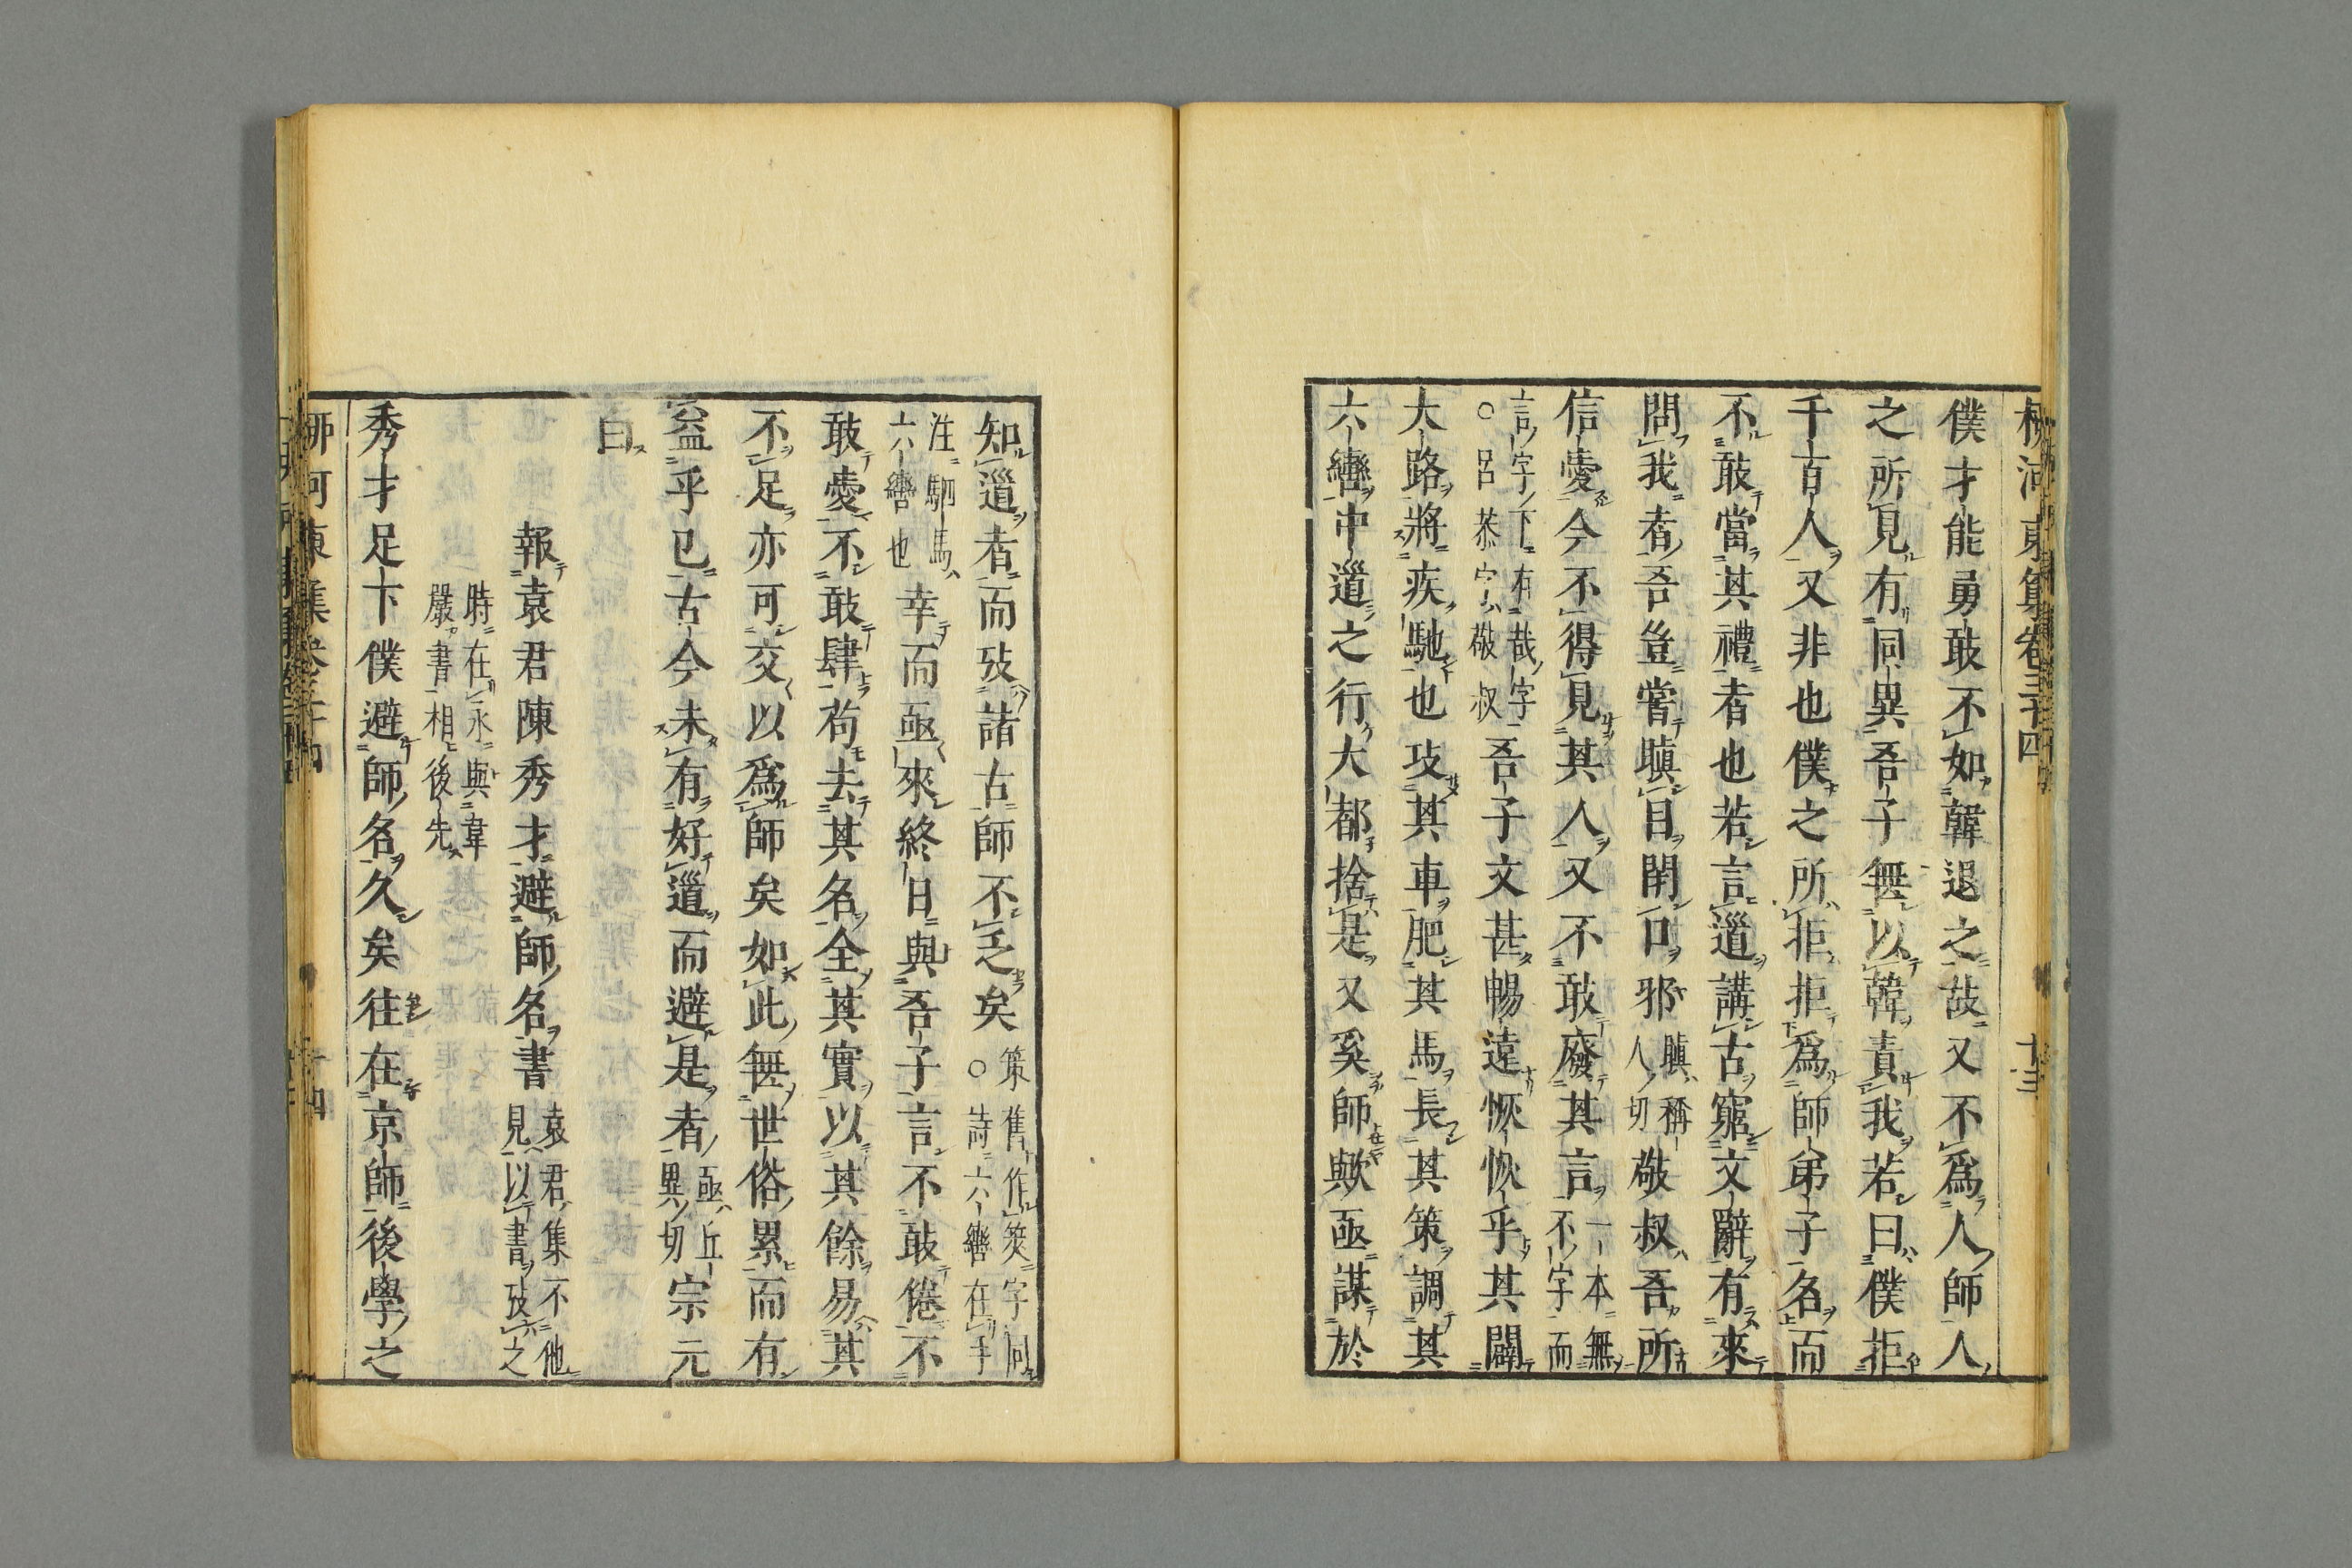 柳河東集卷三十四 十三
僕才能勇敢不如韓退之故又不爲人師人
之所見有同異吾子無以韓責我若曰僕拒
千百人又非也僕之所拒拒爲師弟子名而
不敢當其禮者也若言道講古窮文辭有來
問我者吾豈嘗瞋目閉口邪瞋稱人切敬叔吾所
信愛今不得見其人又不敢廢其言一本無不字而
言字下有哉字○呂恭字敬叔吾子文甚暢遠恢恢乎其闢
大路將疾馳也攻其車肥其馬長其策調其
六轡中道之行大都捨是又奚師歟亟謀於
知道者而攷諸古師不乏矣策舊作筴字同○詩六轡在手
注駟馬六轡也幸而亟來終日與吾子言不敢倦不
敢愛不敢肆苟去其名全其實以其餘易其
不足亦可交以爲師矣如此無世俗累而有
益乎已古今未有好道而避是者亟丘異切宗元
白
報袁君陳秀才避師名書袁君集不他見以書攷之
時在永與韋嚴書相後先
秀才足下僕避師名久矣往在京師後學之
柳河東集卷三十四 十四